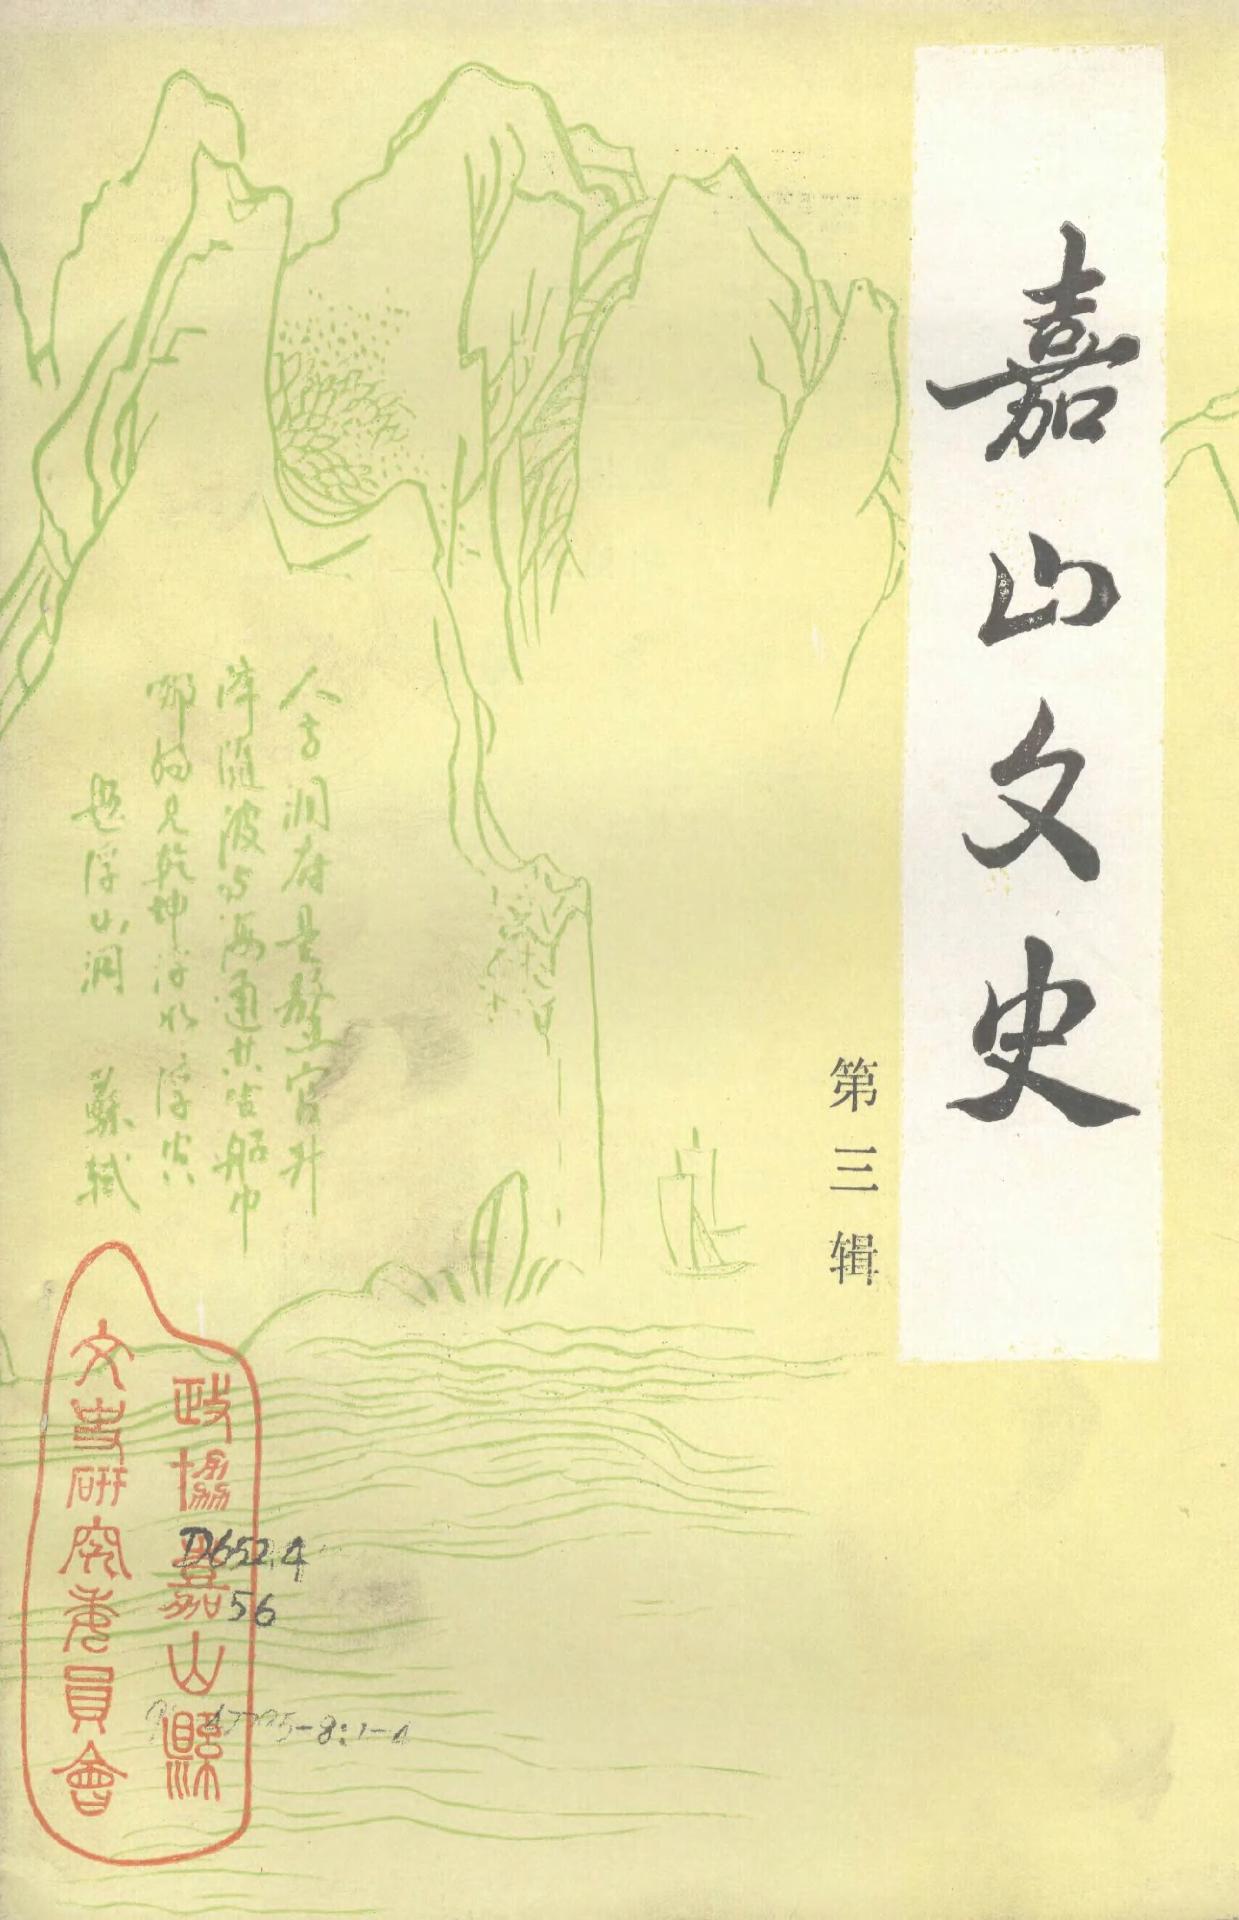 嘉山文史
第三辑
人言洞府是鳌宫升
降随波与海通共坐船中
那得见乾坤浮水水浮空
题浮山洞 苏轼
政協嘉山縣
文史研究委員會
D652.4
56